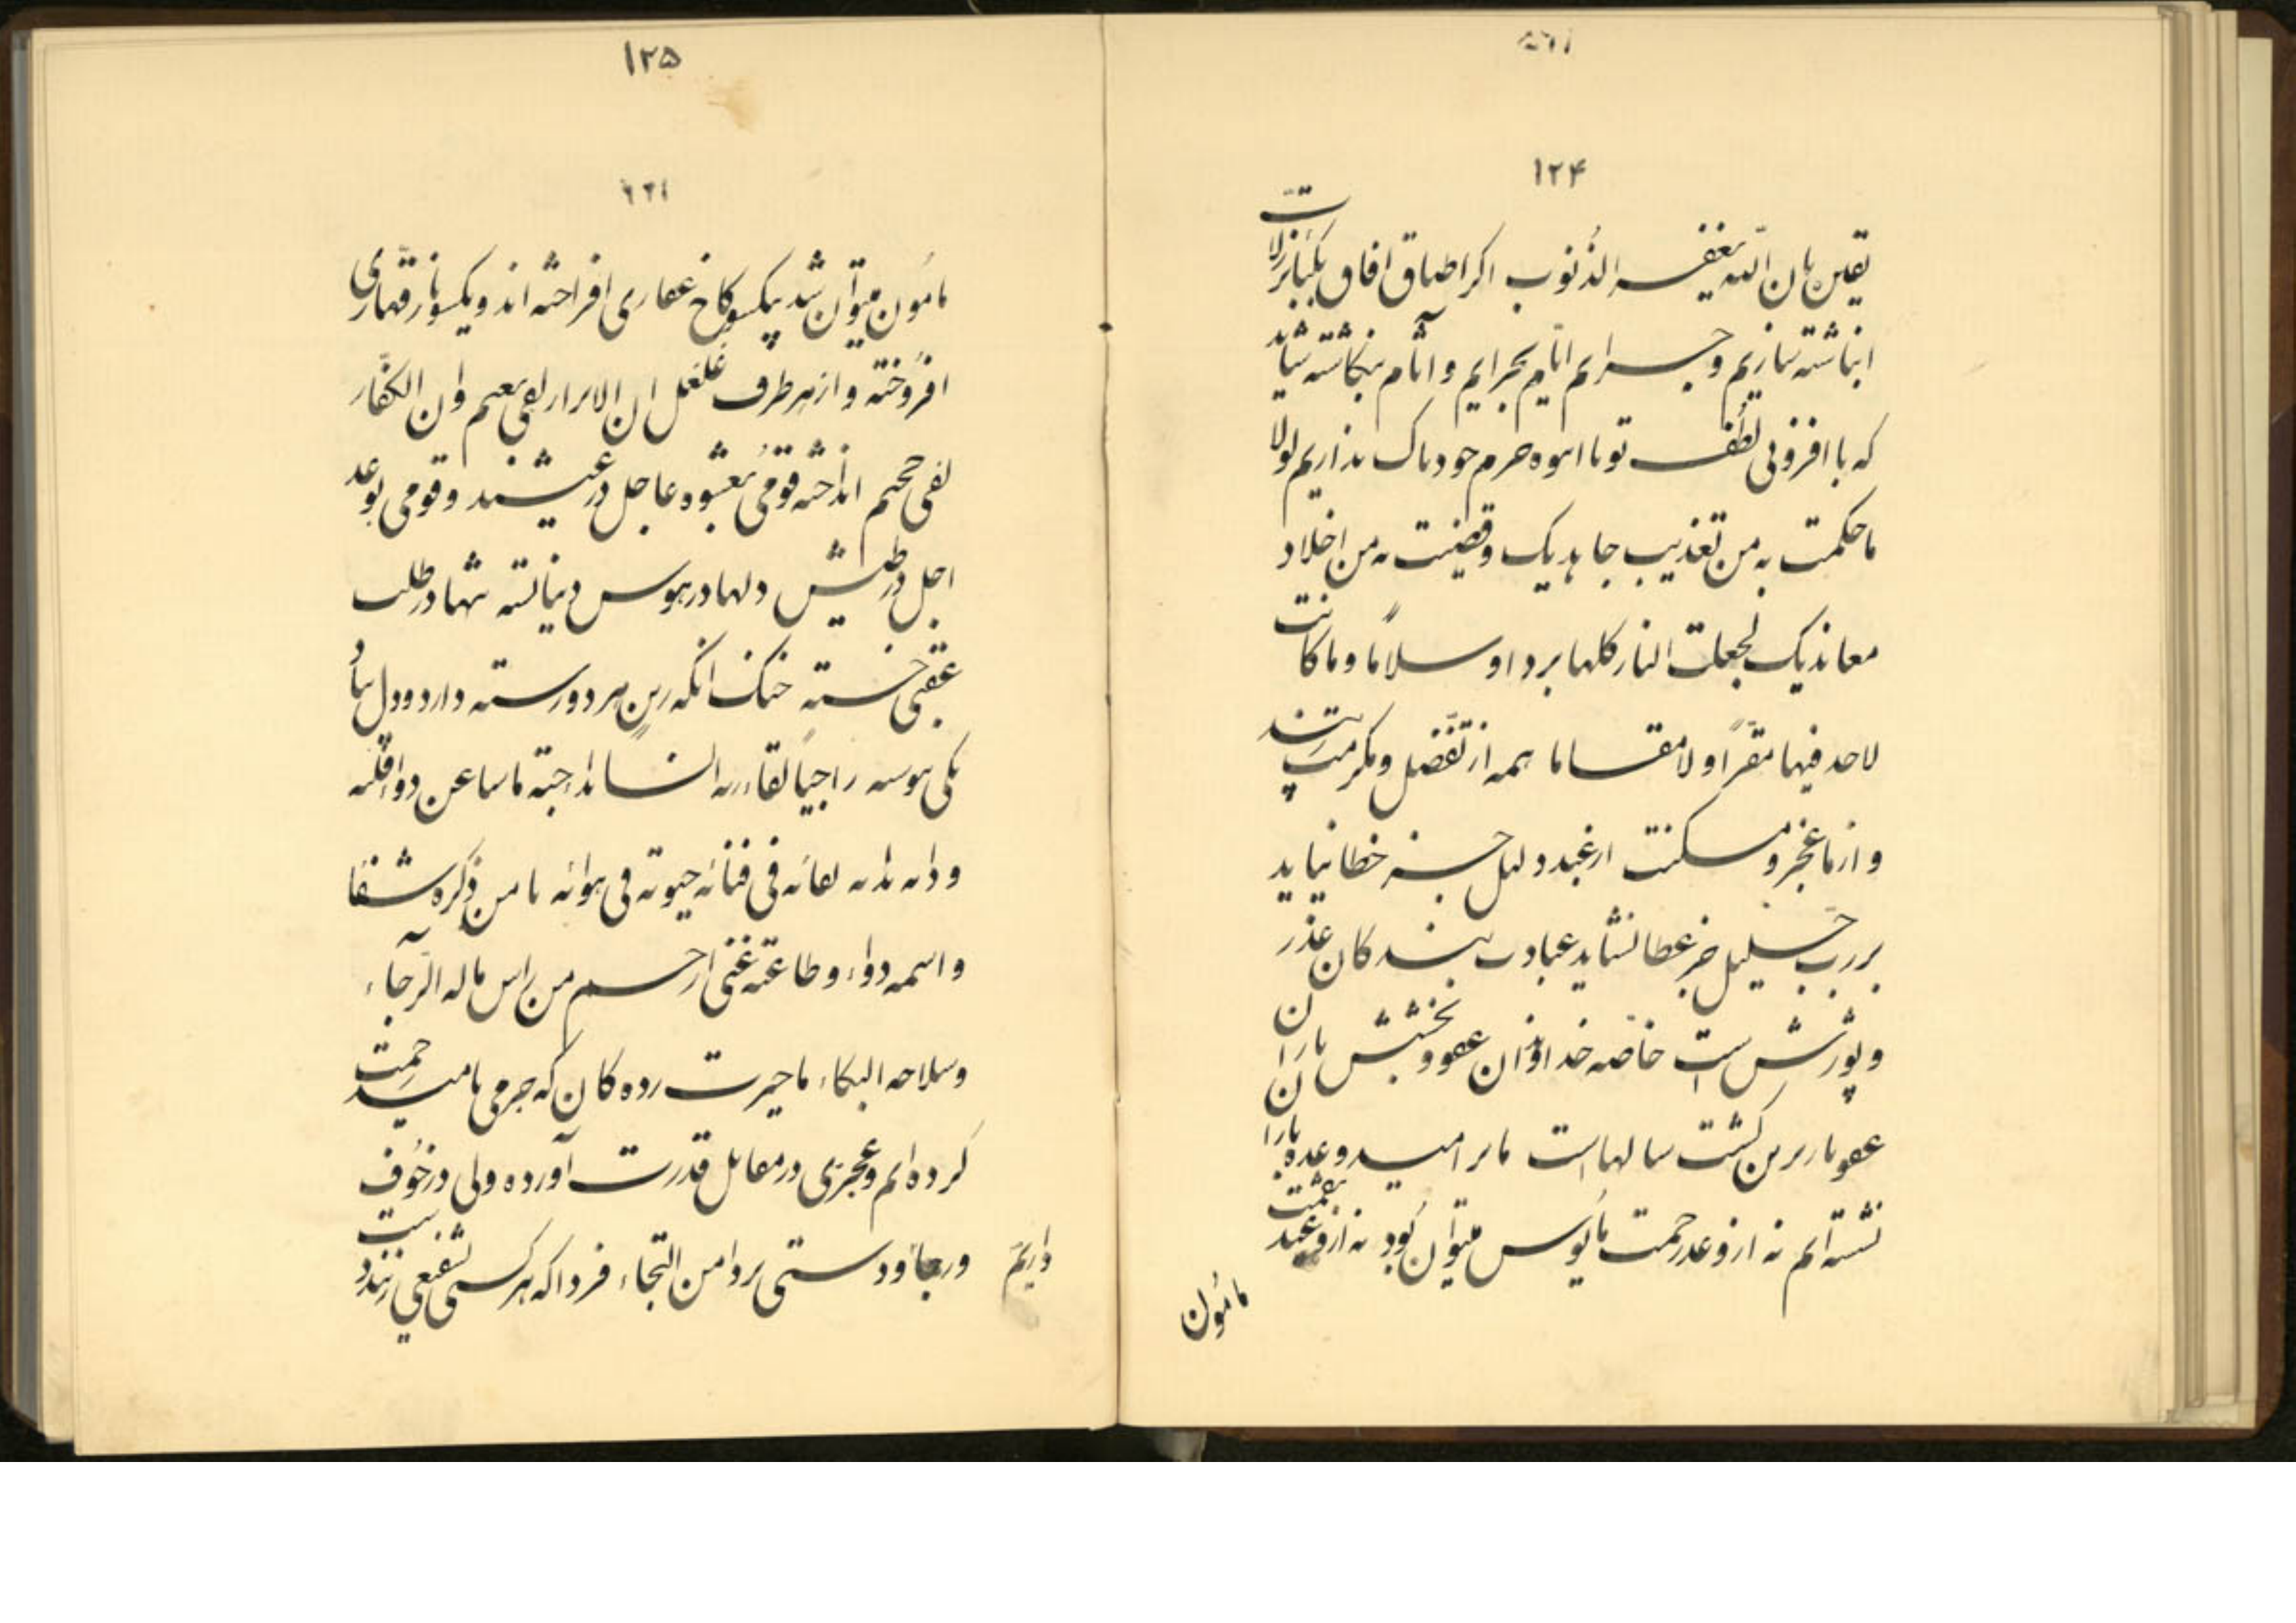 ۱۲۴
یقین بان الله یغفر الذنوب اکر اطباق افاق بکبائر زلات
انباشته سازیم و جرایم ایام بجرایم و آثام نکاشته شاید
که با افزونی لطف تو با انبوه جرم خود باک نداریم لولا
ما حکمت به من تعذیب جاحدیک و قضیت به من اخلاد
معاندیک لجعلت النار کلها بردا و سلاما و ما کانت
لاحد فیها مقرا و لا مقاما همه از تفضل و مکرمت
و از ما عجز و مسکنت از عبد ذلیل جز خطا نیاید
بر رب جلیل جز عطا نشاید عبادت بندکان عذر
و پوزش است خاصه خداوندان عفو و بخشش باران
عفو بار برین کشت سالهاست تا بر امید وعده باران
نشسته‌ایم نه از وعد رحمت مأیوس میتوان بود نه از وعید نقمت
مأمون
۱۲۵
مأمون میتوان شد یکسو کاخ غفاری افراخته‌اند و یکسو نار قهاری
افروخته و از هر طرف غلغل ان الابرار لفی نعیم و ان الکفار
لفی جحیم انداخته قومی بعشوه عاجل در عیشند و قومی بوعد
اجل در طیش دلها در هوس دنیا بسته تنها در طلب
عقبی خسته خنک آنکه زین هر دو رسته دارد و دل
یکی راجیا لقاء ربه
فی فنائه حیوته فی هوائه یا من ذکره شفا
و اسمه دواء و طاعته غنی ارحم من راس ماله الرجاء
و سلاحه البکاء ما حیرت زده کان که جرمی بامید رحمت
کرده‌ایم و عجزی در مقابل قدرت آورده ولی در خوف
و رجا و دستی بر دامن التجاء فردا که هر کسی بشفیعی زنند دست
داریم